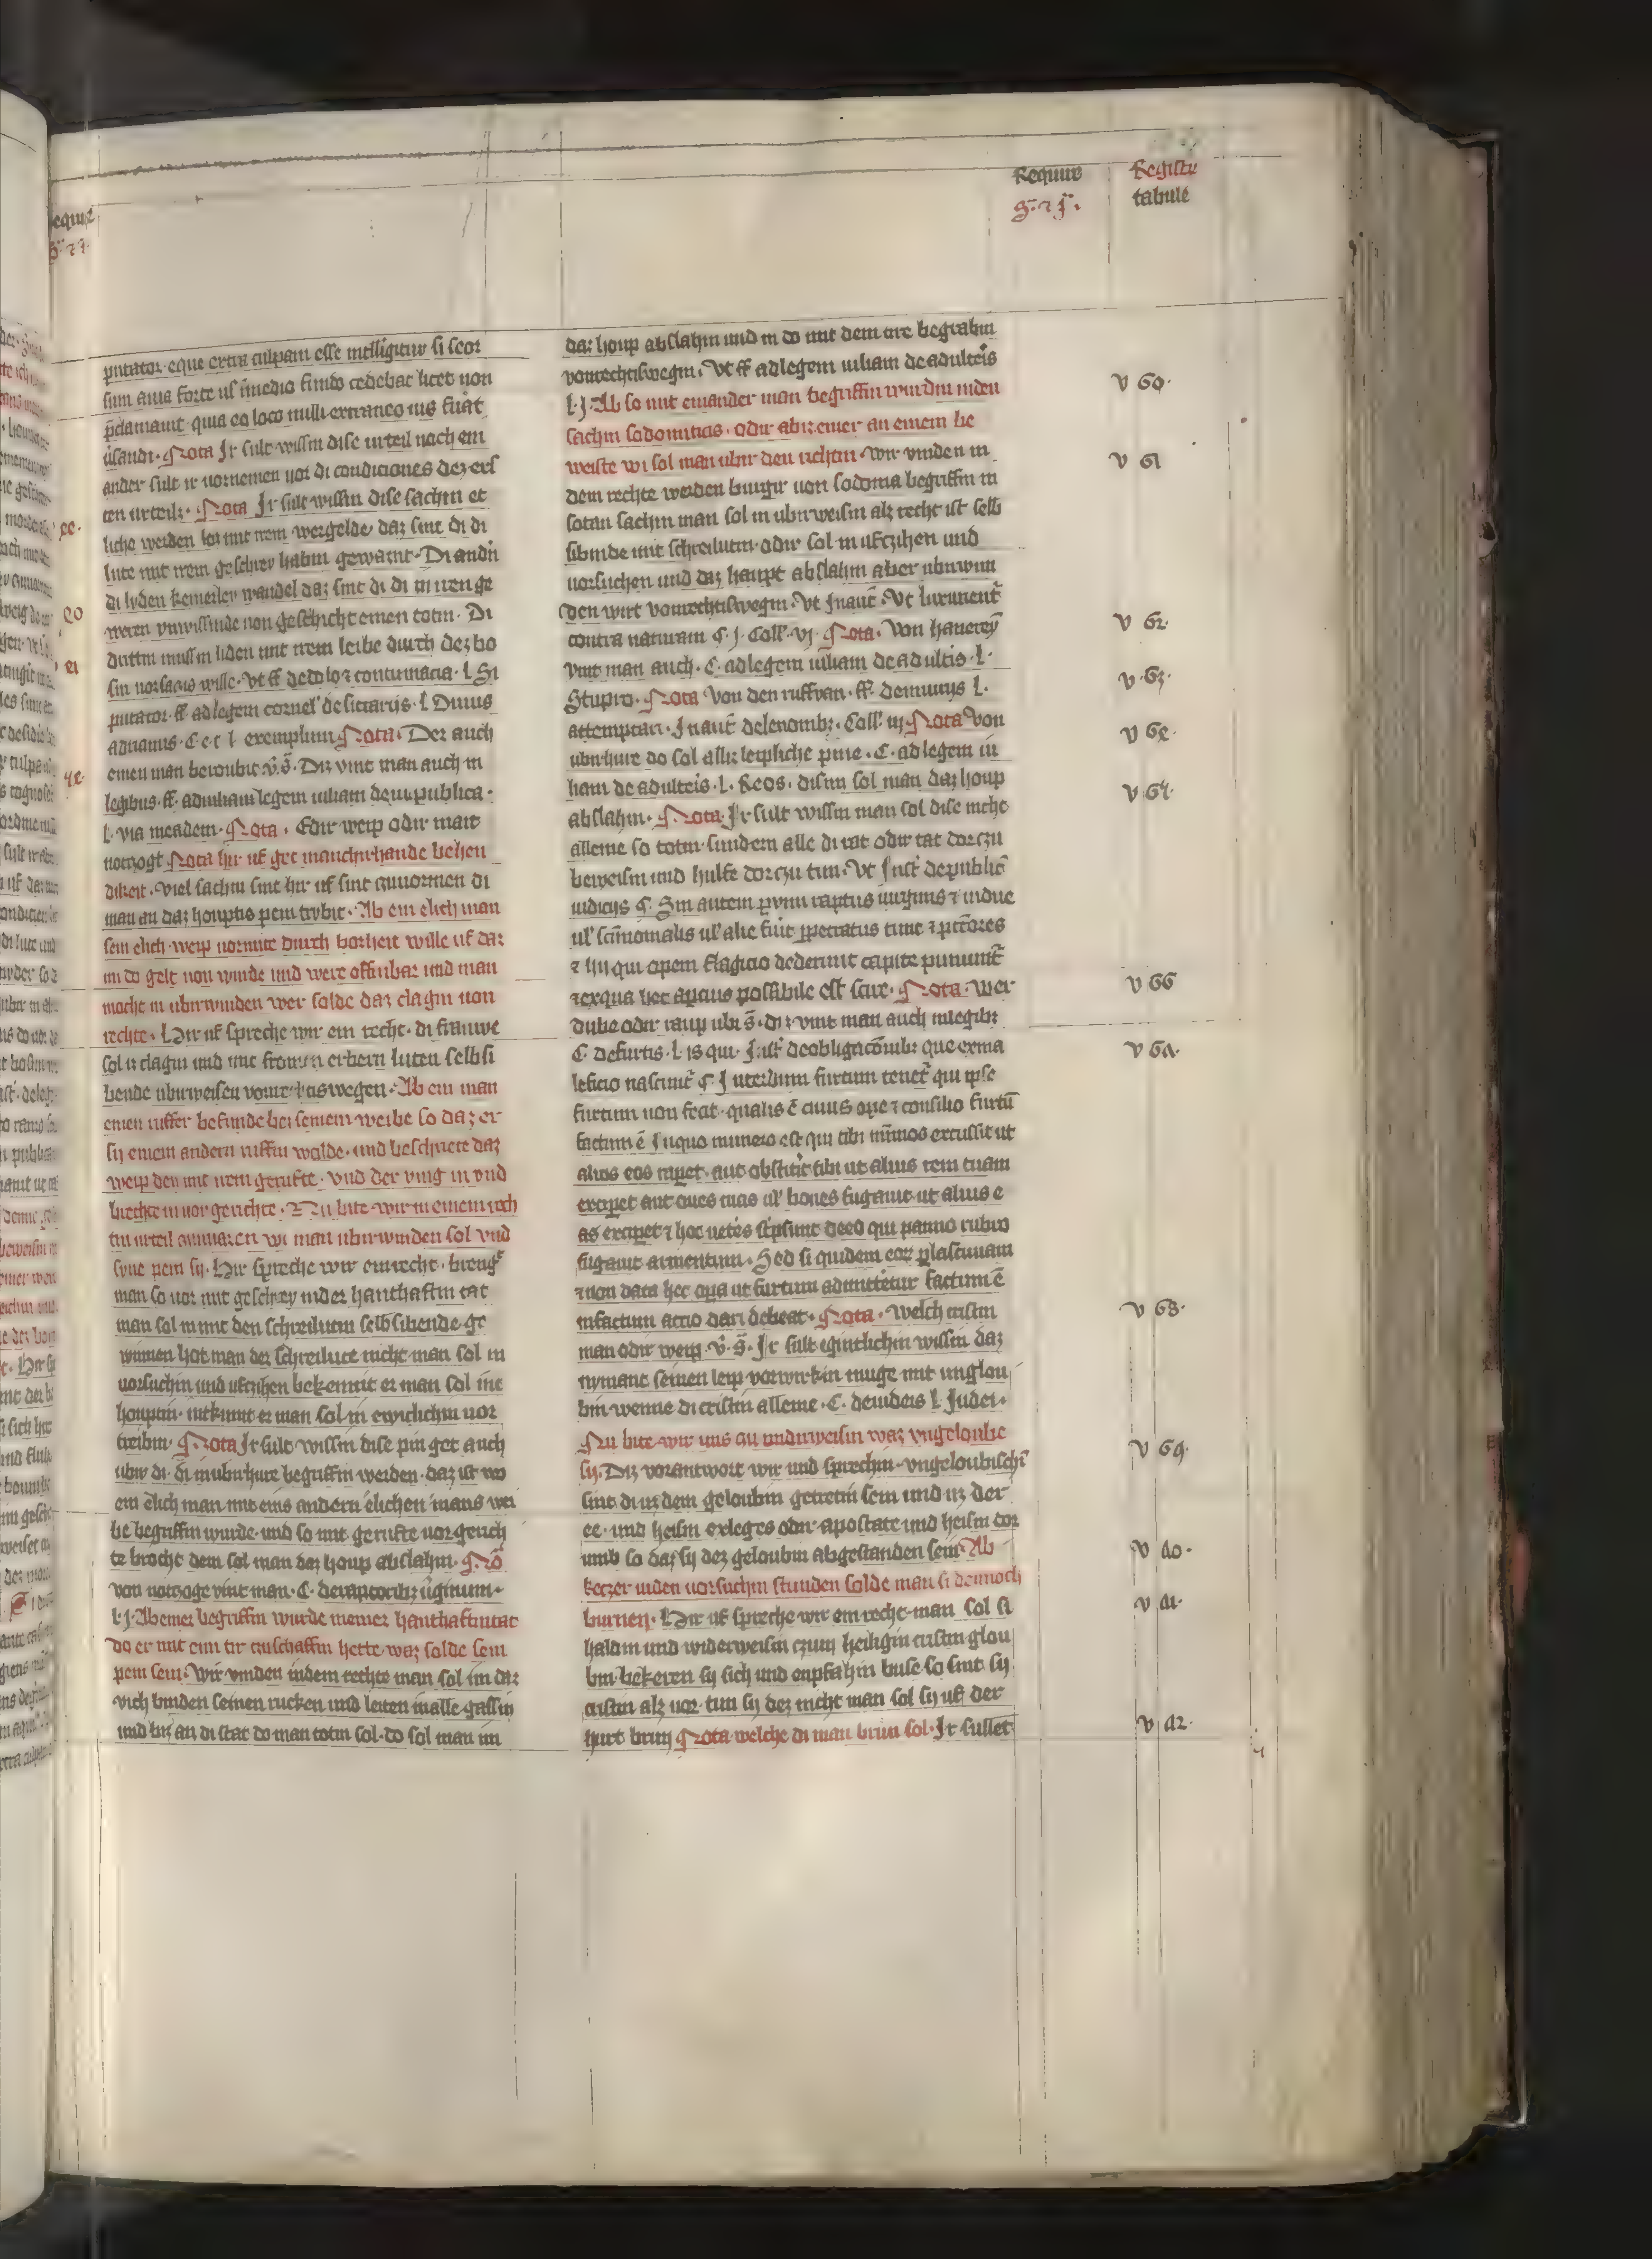 Require
Registrum
tabule
putator eque extra culpam esse intelligitur si seor
sum a via forte vel in medio fundo cedebat licet non
proclamavit quia eo loco nulli extraneo ius fuerat
visandi. Nota Jr sult wissin dise urteil noch ein
ander sult ir vornemen vor di condiciones dez ers
ten urteilz. Nota Jr sult wissin dise sachin et
liche werden los mit irem wergelde daz sint di di
lute mit irem geschrey habin gewarnt. Di andirn
di lyden keinerley wandel daz sint di di in irem ge
weren unwissinde von geschicht einen totin. Di
drittin mussin liden mit irem leibe durch dez bo
sin vorsatis wille. Vt ff de dolo et contumacia. l. Si
putator. ff. ad legem cornel' de siccariis. l. Divus
adrianus. C. e. t. l. exemplum Nota. Der auch
einen man beroubit v. s. Diz vint man auch in
legibus. ff. ad iuliam legem iuliam de vi publica.
l. via in eadem. Nota. Edir weip odir mait
notzogt Nota hir uf get manchirhande behen
dikeit. Viel sachin sint hir uf sint zuvornemen di
man an daz houptis pein trybit. Ab ein elich man
sein elich weip vormite durch bosheit wille uf daz
im do gelt von wurde und were offinbar und man
mochte in ubirwinden wer solde daz clagin von
rechte. Hir uf spreche wir ein recht. di frauwe
sol iz clagin und mit fromen erbern luten selbsi
bende ubirweisen von rechtis wegen. Ab ein man
einen ruffer befunde bei seinem weibe so daz er
sy einem andern ruffin wolde. und beschriete daz
weip den mit irem gerufte. Und der ving in und
brechte in vor gerichte. Nu bite wir in einem rech
tin urteil zuvinazen wi man ubirwinden sol und
syne pein sy. Hir spreche wir ein recht. brengt
man so vor mit geschrey in der hanthaftin tat
man sol in mit den schreiluten selb sibende ge
winnen hot man der schreilute nicht man sol in
vorsuchin und ufczihen bekennit er man sol in
houptin. intkumt er man sol in ewiclichin vor
treibin. Nota Jr sult wissin dise pin get auch
ubir di. di in ubirhure begriffin werden. daz ist wo
ein elich man mit eins andern elichen mans wei
be begriffin wurde. und so mit gerufte vor gerich
te brocht dem sol man daz houp abslahin. Nota
von notzoge vint man. C. de raptoribus virginum.
l. j. Ab einer begriffin wurde in einer hanthaftin tat
do er mit eim tir zuschaffin hette. waz solde sein
pein sein. Wir vinden in dem rechte man sol im daz
vich binden seinen rucken und leiten in alle gassin
und biz an di stat do man totin sol. do sol man im
daz houp abslahin und in do mit dem tire begrabin
von rechtiswegin. Vt ff ad legem iuliam de adulteris
l. j. Ab so mit einander man begriffin wurdin in den
sachin sodomiticis. odir ab iz einer an einem be
weiste wi sol man ubir den richtin. Wir vinden in
dem rechte werden burger von sodoma begriffin in
sotan sachin man sol in ubirweisin alz recht ist selb
sibinde mit schreilutin. odir sol in ufczihen und
vorsuchen und daz haupt abslahin aber ubirwun
den wirt von rechtiswegin. Vt Jn autent. Vt luxurientur
contra naturam §. j. Coll. vj. Nota. Von hurerey
vint man auch. C. ad legem iuliam de adulteriis. l.
Stupro. Nota Von den ruffran. ff. de iniuriis l.
attemptari. Jn autent de lenonibus. Coll. iij Nota Von
ubirhure do sol alliz leipliche pine. C. ad legem iu
liam de adulteris. l. Reos. disin sol man daz houp
abslahin. Nota Jr sult wissin man sol dise nicht
alleine so totin sundern alle di rat odir tat dorczu
beweisin und hulfe dorczu tun. Vt Jnst de publicis
iudiciis §. Sin autem per vim raptus virginis et vidue
vel sanctimonialis vel alie fuit perpetratus tunc et peccatores
et hii qui opem flagicio dederunt capite puniuntur
et ex qua hec apcius possibile est scire. Nota. Wer
dube odir raup ubi s. diz vint man auch in legibus
C. de furtis. l. is qui. Jnst de obligacionibus que ex ma
leficio nascuntur §. Interdum furtum tenetur qui ipse
furtum non fecit. qualis est cuius ope et consilio furtum
factum est Jn quo numero est qui tibi nummos excussit ut
alius eos raperet. aut obstitit tibi ut alius rem tuam
exciperet aut oves tuas vel boves fugavit. ut alius e
as exciperet et hoc veteres scripserunt de eo qui panno rubro
fugavit armentum. Sed si quidem eorum per lasciviam
et non data hec opera ut furtum admitteretur factum est
in factum actio dari debeat. Nota. Welch cristin
man odir weip. v. s. Jr sult egintlichin wissin daz
nymant seinen leip vorwirkin muge mit unglou
bin wenne di cristin alleine. C. de iudeis l. Judei.
Nu bite wir uns zu undirweisin waz ungeloube
sy. Diz vorantwort wir und sprechin. ungeloubischin
sint di uz dem geloubin getretin sein und uz der
ee. und heisin exleges odir apostate und heisin dor
umb so daz sy dez geloubin abgestanden sein. Ab
ketzer in den vorsuchin stunden solde man si dennoch
burnen. Hir uf spreche wir ein recht. man sol si
haldin und widerweisin czum heiligin cristin glou
bin. bekeren sy sich und enpfahin buse so sint sy
cristin alz vor. tun sy dez nicht man sol sy uf der
hurt brinn Nota welche di man brinn sol. Jr sullet
V 60.
V 61
V 62.
V 63.
V 64.
V 65.
V 66
V 67.
V 68.
V 69.
V 70.
V 71.
V 72.